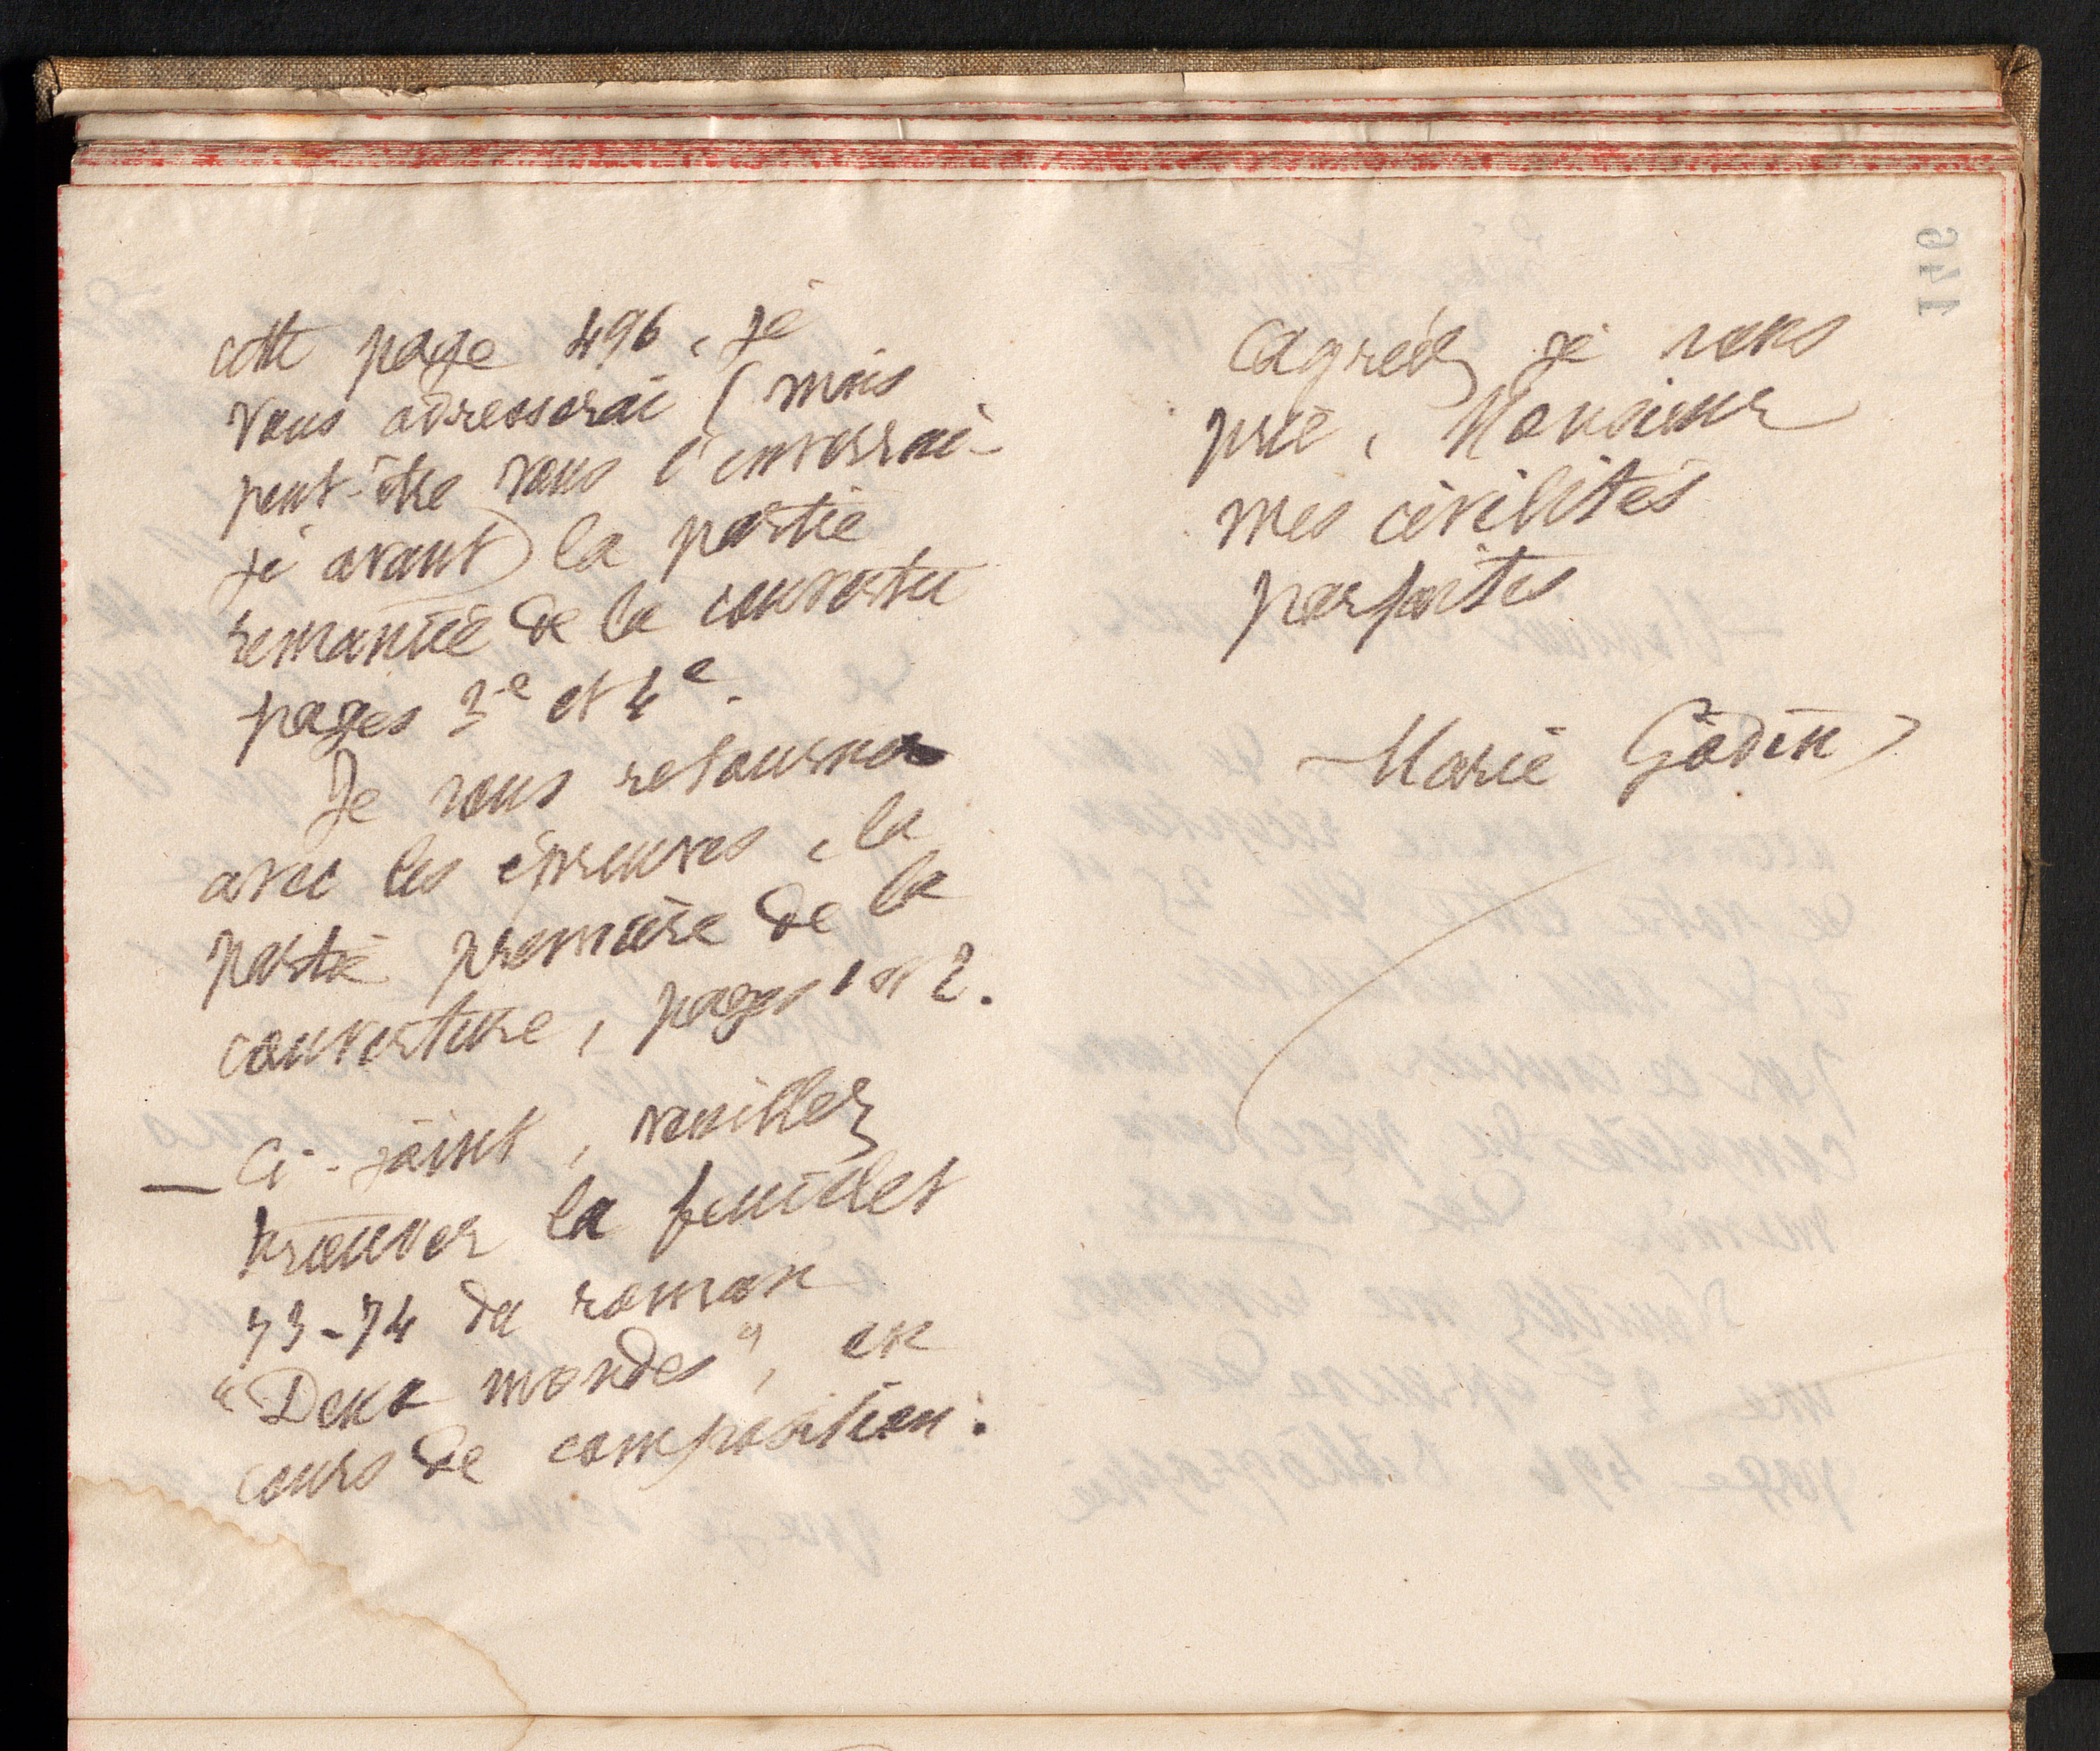 cette page 496, je
vous adresserai (mais
peut-être vous l'enverrai-
je avant) la partie
remaniée de la couverture
pages 3e et 4e.
Je vous retourne
avec les épreuves, la
partie première de la
couverture, pages 1 et 2.
— Ci-joint, veuillez
trouver la feuillet
73-74 du roman
"Deux mondes", en
cours de composition.
Agréez je vous
prie, Monsieur
mes civilités
parfaites
Marie Godin